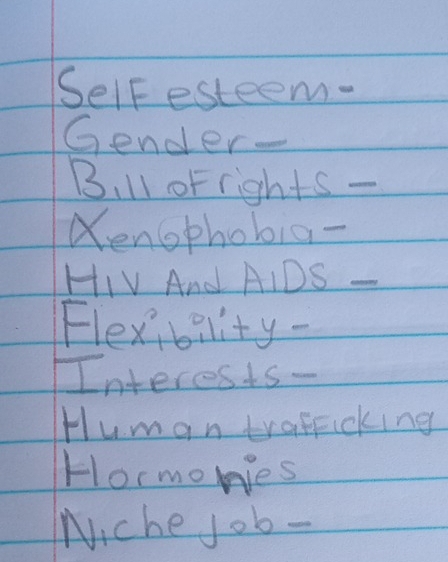 Self esteem -
Gender -
Bill of rights -
Xenophobia -
HIV And AIDS -
Flexibility -
Interests -
Human trafficking
Hormonies
Niche job -